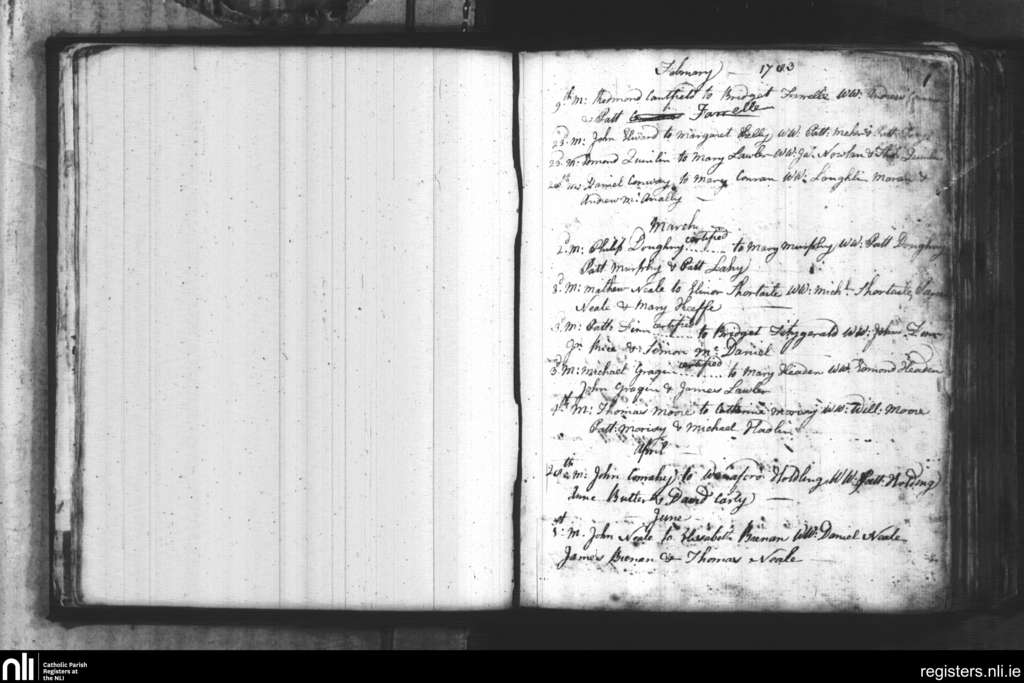 February — 1783
1
9th M: Redmond Cantfield to Bridget Farrelle WW: Andrew
& Patt Farrelle
23. M: John Elward to Margaret Kelly WW: Patt: Maher & Patt
23. M: Edmond Quinlin to Mary Lawler WW: Ja. Nowlan &
24th M: Daniel Conway to Mary Conran WW: Loughlin Moran &
Andrew McAnally
March
2d. M: Philip Doughny certified to Mary Murphy WW: Patt Doughny
Patt Murphy & Patt Lahy
3d. M: Mathew Neale to Elinor Shortaile WW: Michl. Shortaile,
Neale & Mary Keeffe
3d. M: Patk Finn certified to Bridget Fitzgerald WW: John Finn
Jn Price & Simon McDaniel
3d M: Michael Gragin certified to Mary Headen WW: Edmond Headen
John Gragin & James Lawler
4th M: Thomas Moore to Catherine Morisy WW: Will: Moore
Patt: Morisy & Michael
April
28th M: John Comahy to Holding WW: Patt: Holding
June Butler & David Carty
June
1st M. John Neale to Elisabeth Brenan WW: Daniel Neale
James Brenan & Thomas Neale
nli
Catholic Parish
Registers at
the NLI
registers.nli.ie